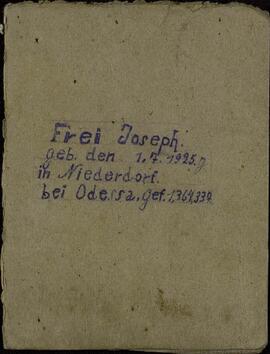 Frei Joseph.
geb. den 1.7.1925.
in Niederdorf.
bei Odessa. gef. 1,364,339